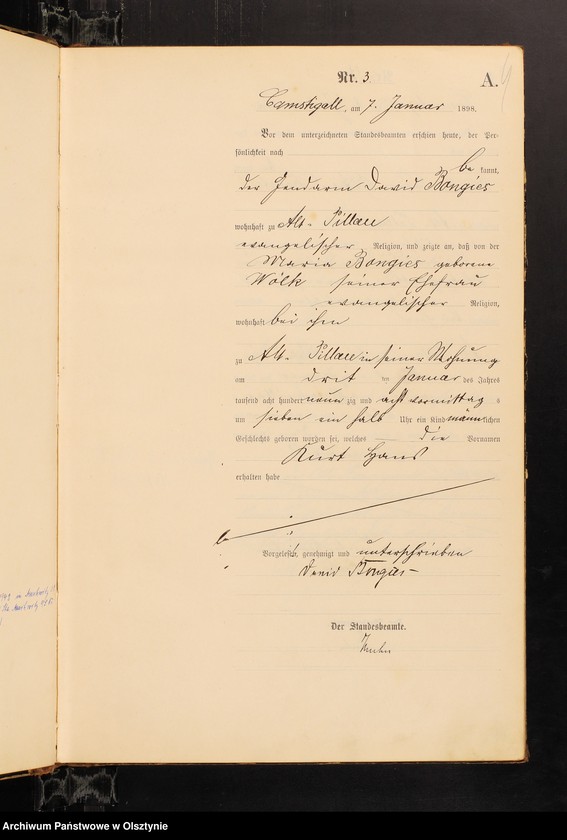 Nr. 3
A.
Camstigall, am 7. Januar 1898.
Vor dem unterzeichneten Standesbeamten erschien heute, der Per-
sönlichkeit nach
be kannt,
der Gendarm David Bongies
wohnhaft zu Alt-Pillau
evangelischer Religion, und zeigte an, daß von der
Maria Bongies geborene
Wölk seiner Ehefrau
evangelischer Religion,
wohnhaft bei ihm
zu Alt-Pillau in seiner Wohnung
am drit ten Januar des Jahres
tausend acht hundert neun zig und acht vormittag s
um sieben ein halb Uhr ein Kind männlichen
Geschlechts geboren worden sei, welches die Vornamen
Kurt Hans
erhalten habe
Vorgelesen, genehmigt und unterschrieben
David Bongies
Der Standesbeamte.
Archiwum Państwowe w Olsztynie